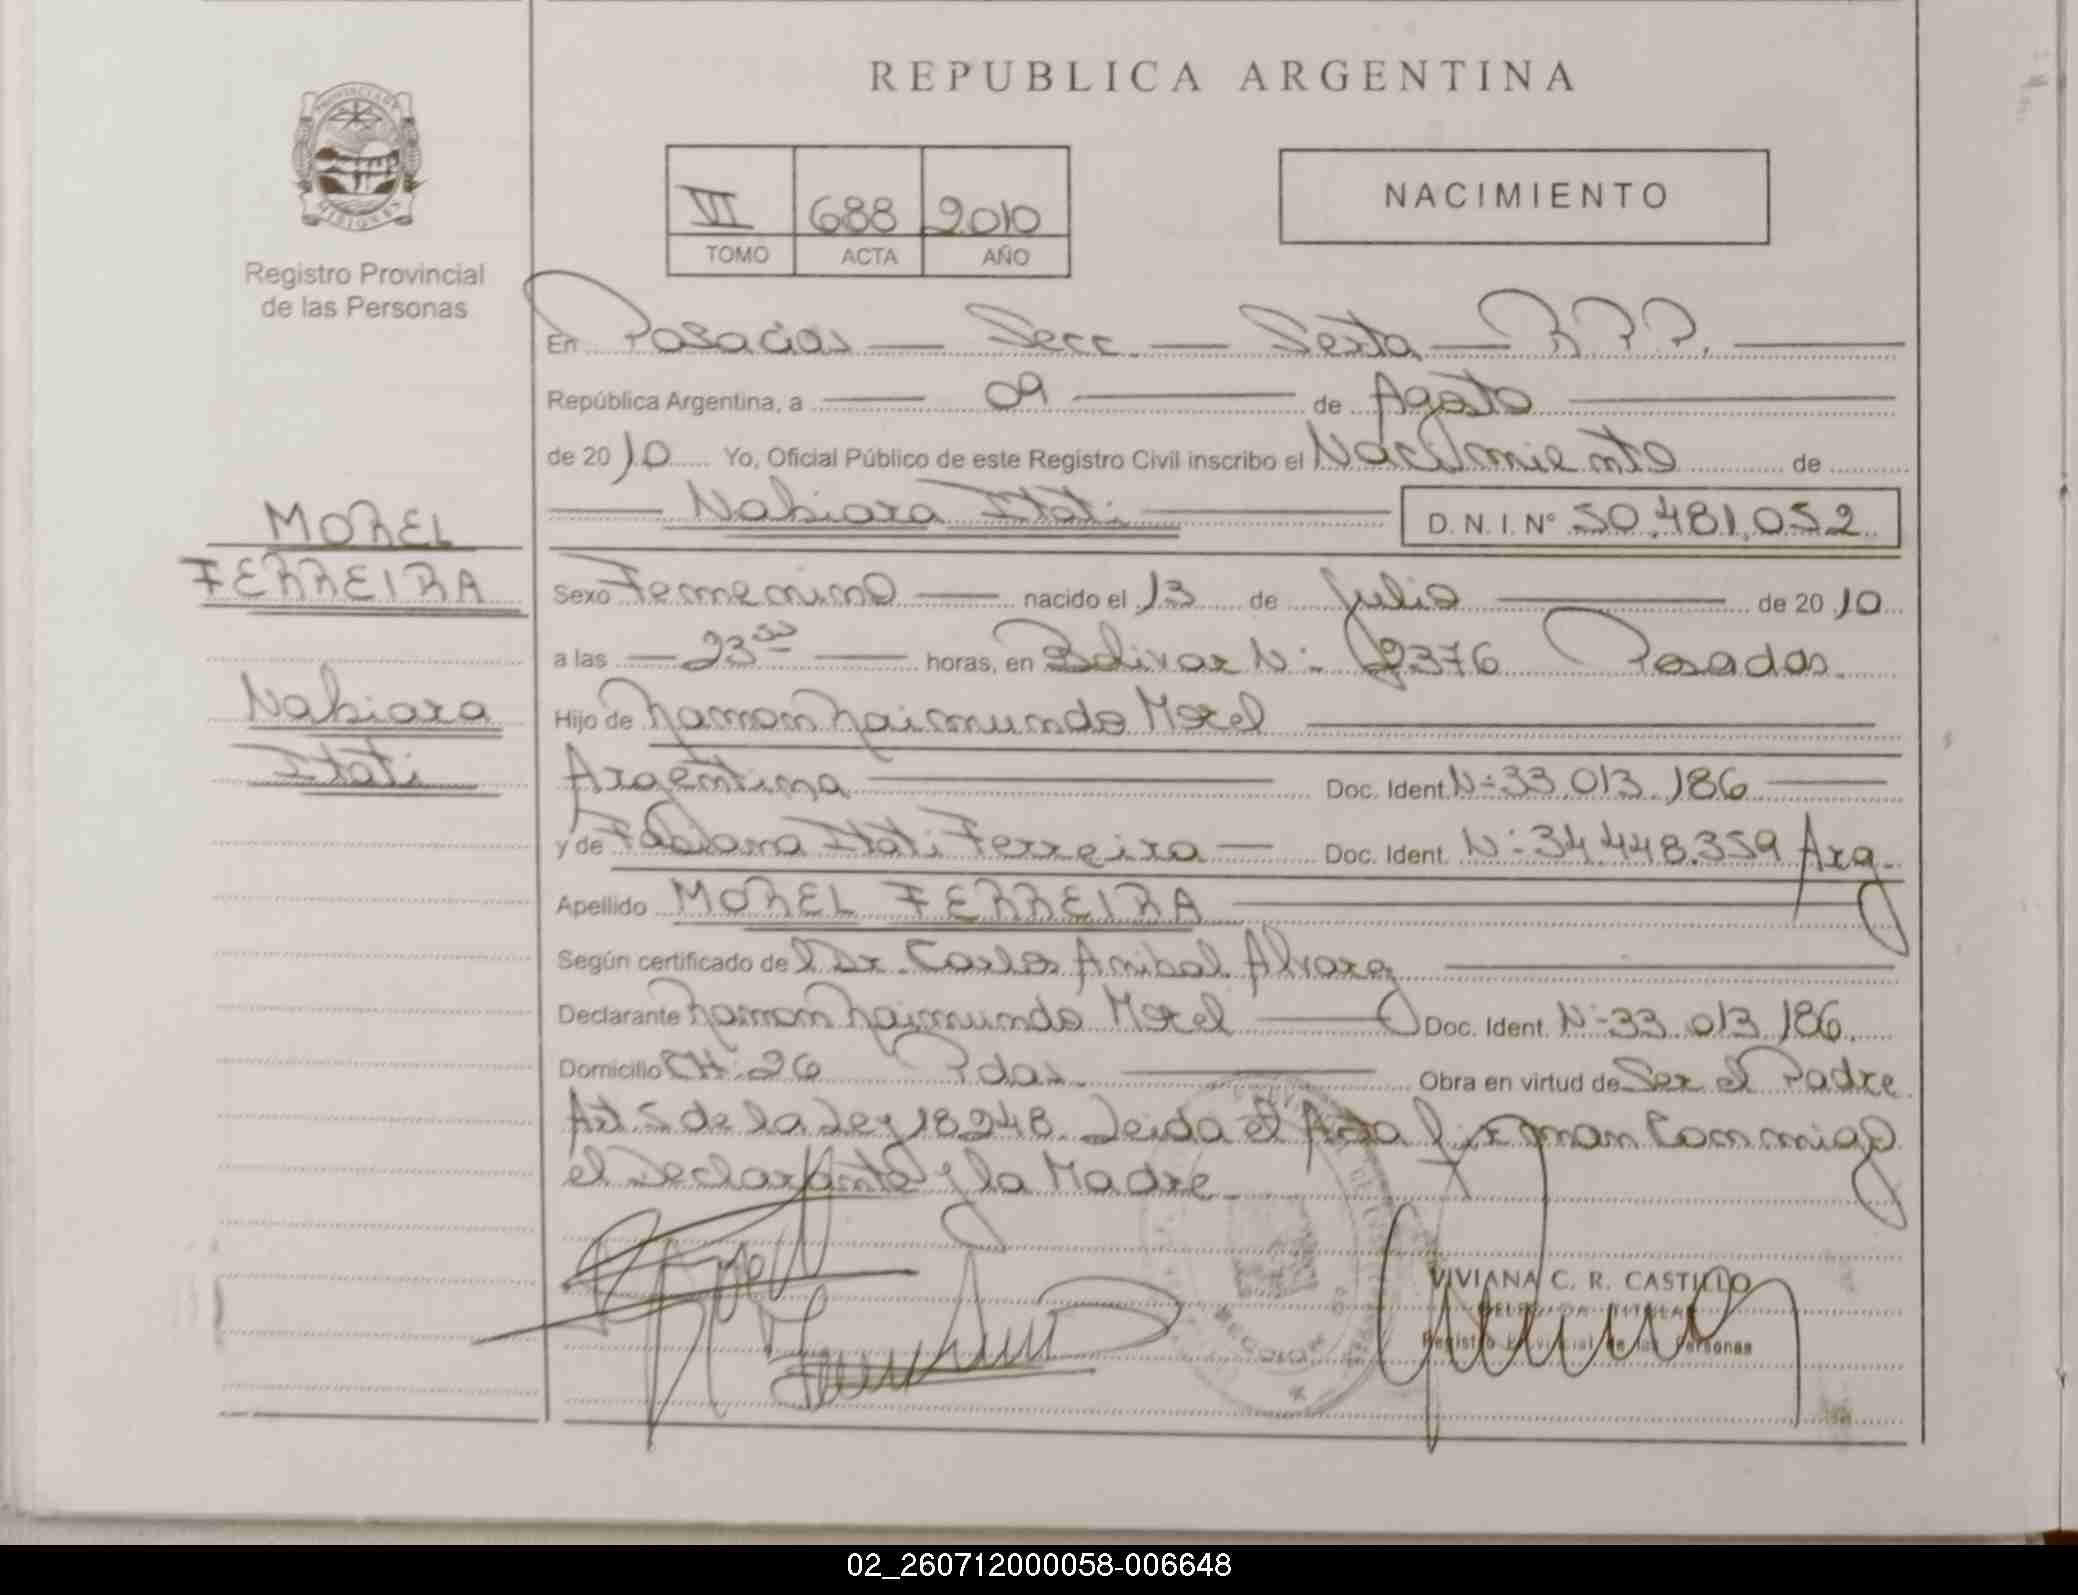 REPUBLICA ARGENTINA
PROVINCIA DE MISIONES
Registro Provincial
de las Personas
VI 688 2010
TOMO ACTA AÑO
NACIMIENTO
En Posadas — Secc. — Sexta — R.P.P.
República Argentina, a 09 de Agosto
de 2010 Yo, Oficial Público de este Registro Civil inscribo el Nacimiento de
Nahiara Itati D.N.I. N° 50.481.052
MOREL
FERREIRA
Nahiara
Itati
Sexo Femenino nacido el 13 de Julio de 2010
a las 23 horas, en Bolivar N: 2376 Posadas.
Hijo de Ramon Raimundo Morel
Argentina Doc. Ident. N: 33.013.186
y de Fabiana Itati Ferreira Doc. Ident. N: 34.448.359 Arg.
Apellido MOREL FERREIRA
Según certificado del Dr. Carlos Anibal Alvarez
Declarante Ramon Raimundo Morel Doc. Ident. N: 33.013.186.
Domicilio CH: 26 Pdas. Obra en virtud de Ser el Padre
Art 5 de la Ley 18248. Leida el Acta firman Conmigo
el Declarante y la Madre.
VIVIANA C. R. CASTILLO
DELEGADA TITULAR
Registro Provincial de las Personas
02_260712000058-006648